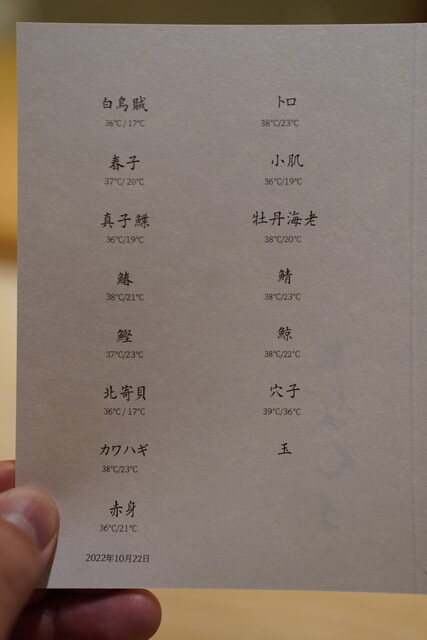 白烏賊
36℃ / 17℃
春子
37℃/ 20℃
真子鰈
36℃/19℃
鰆
38℃/21℃
鰹
37℃/23℃
北寄貝
36℃ / 17℃
カワハギ
38℃/23℃
赤身
36℃/21℃
2022年10月22日
トロ
38℃/23℃
小肌
36℃/19℃
牡丹海老
38℃/20℃
鯖
38℃/23℃
鯨
38℃/22℃
穴子
39℃/36℃
玉